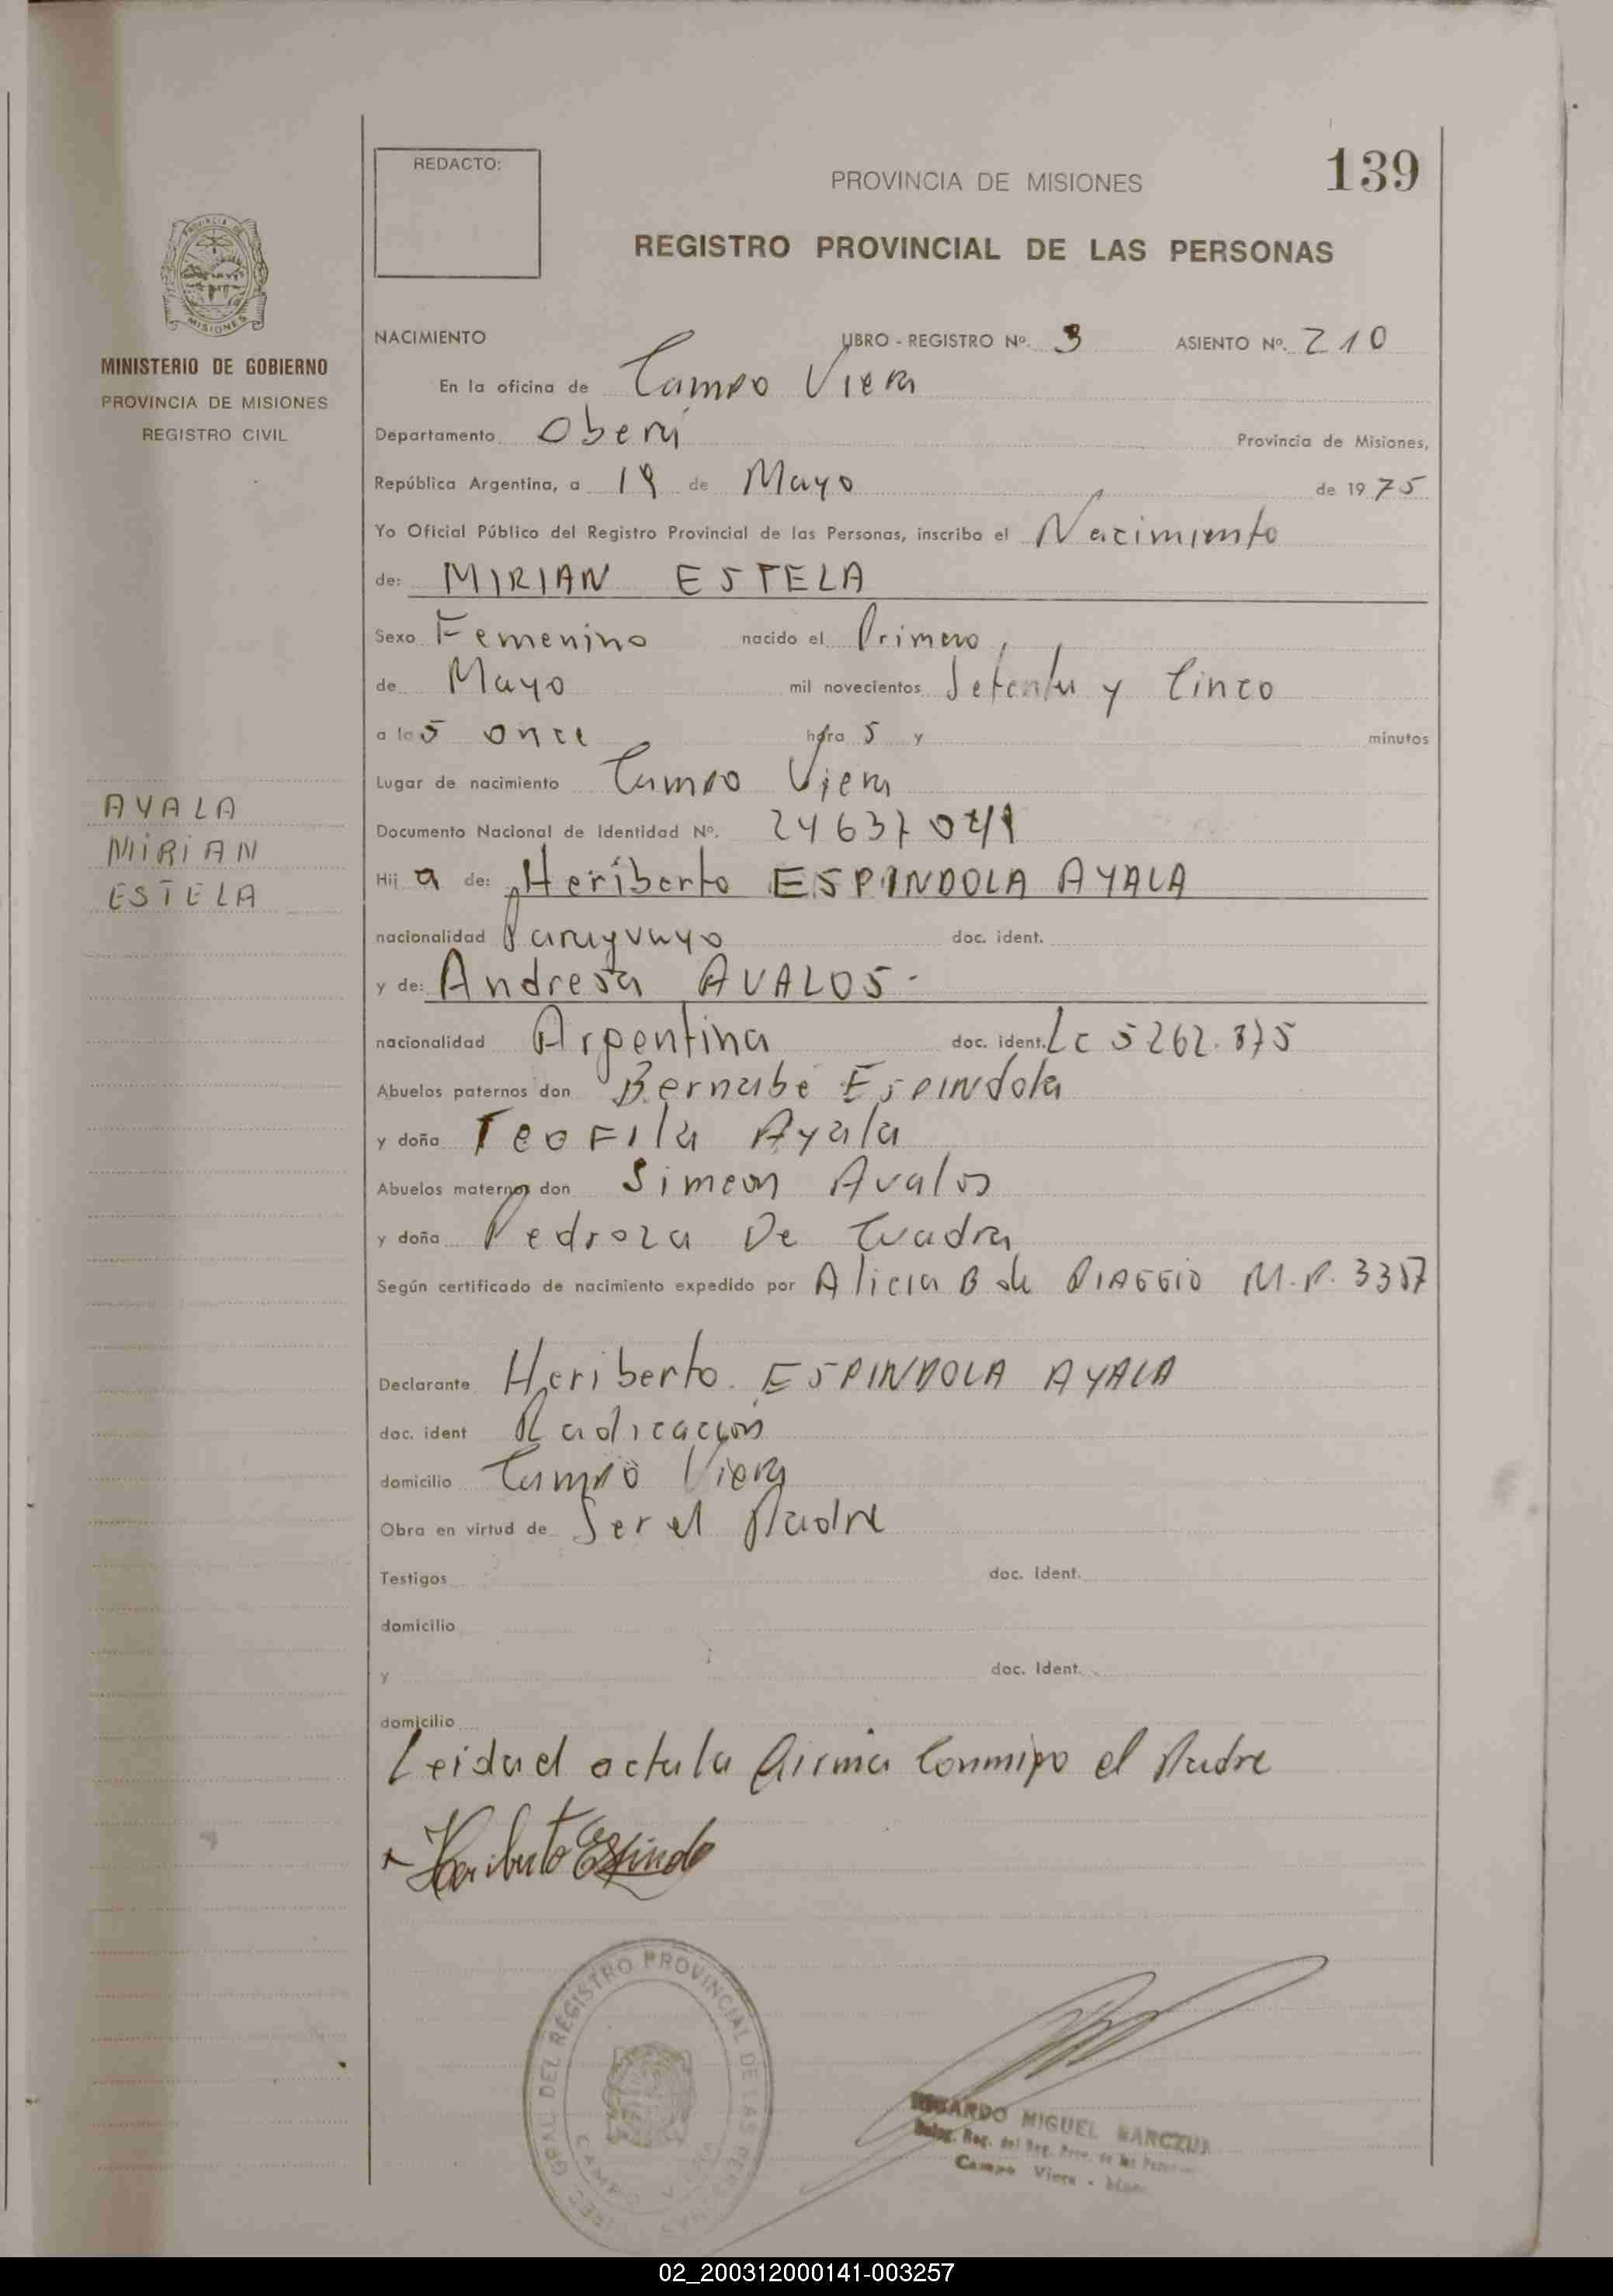 REDACTO:
PROVINCIA DE MISIONES
139
REGISTRO PROVINCIAL DE LAS PERSONAS
PROVINCIA DE
MISIONES
MINISTERIO DE GOBIERNO
PROVINCIA DE MISIONES
REGISTRO CIVIL
NACIMIENTO LIBRO - REGISTRO Nº. 3 ASIENTO Nº. 210
En la oficina de Campo Viera
Departamento Oberá Provincia de Misiones,
República Argentina, a 19 de Mayo de 1975
Yo Oficial Público del Registro Provincial de las Personas, inscribo el Nacimiento
de: MIRIAN ESTELA
Sexo Femenino nacido el Primero,
de Mayo mil novecientos Setenta y Cinco
a las once horas y minutos
Lugar de nacimiento Campo Viera
Documento Nacional de Identidad Nº.
AYALA
MIRIAN
ESTELA
Hija de: Heriberto ESPINDOLA AYALA
nacionalidad Paraguayo doc. ident.
y de: Andresa AVALOS -
nacionalidad Argentina doc. ident. Lc 5262.875
Abuelos paternos don Bernabé Espindola
y doña Teofila Ayala
Abuelos maternos don Simeon Avalos
y doña Pedroza De Cuadra
Según certificado de nacimiento expedido por Alicia B de PIAGGIO M.P. 3357
Declarante Heriberto ESPINDOLA AYALA
doc. ident Radicación
domicilio Campo Viera
Obra en virtud de Ser el Padre
Testigos doc. Ident.
domicilio
y doc. Ident.
domicilio
Leida el acta la firma Conmigo el Padre
Heriberto Espindo
DEL REGISTRO PROVINCIAL DE LAS PERSONAS
CAMPO VIERA
MIGUEL
Campo Viera
02_200312000141-003257